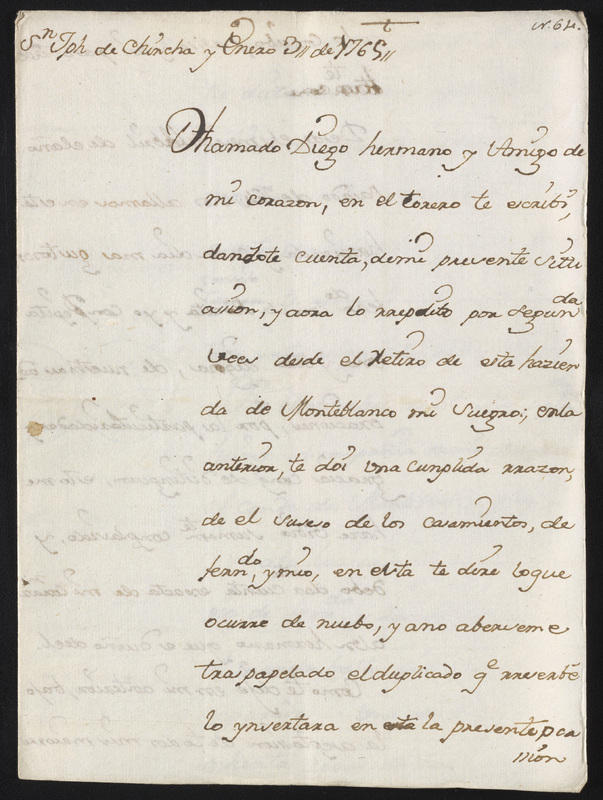 N. 64.
Sn Jph de Chincha y Enero 3,, de 1765,,
Dhamado Diego hermano y Amigo de
mi corazon, en el torero te escribi,
dandote cuenta, demi presente Sittu
assion, y aora lo rrepito por Segunda
vees desde el Retiro de esta hazien
da de Monteblanco mi Suegro; enla
anterior, te doi una cunplida rrazon,
de el suseso de los casamientos, de
ferndo, y mio, en esta te dire loque
ocurre de nuebo, y ano aberseme
traspapelado el duplicado qe rreserbe
lo ynsertara en esta la presente oca
sion